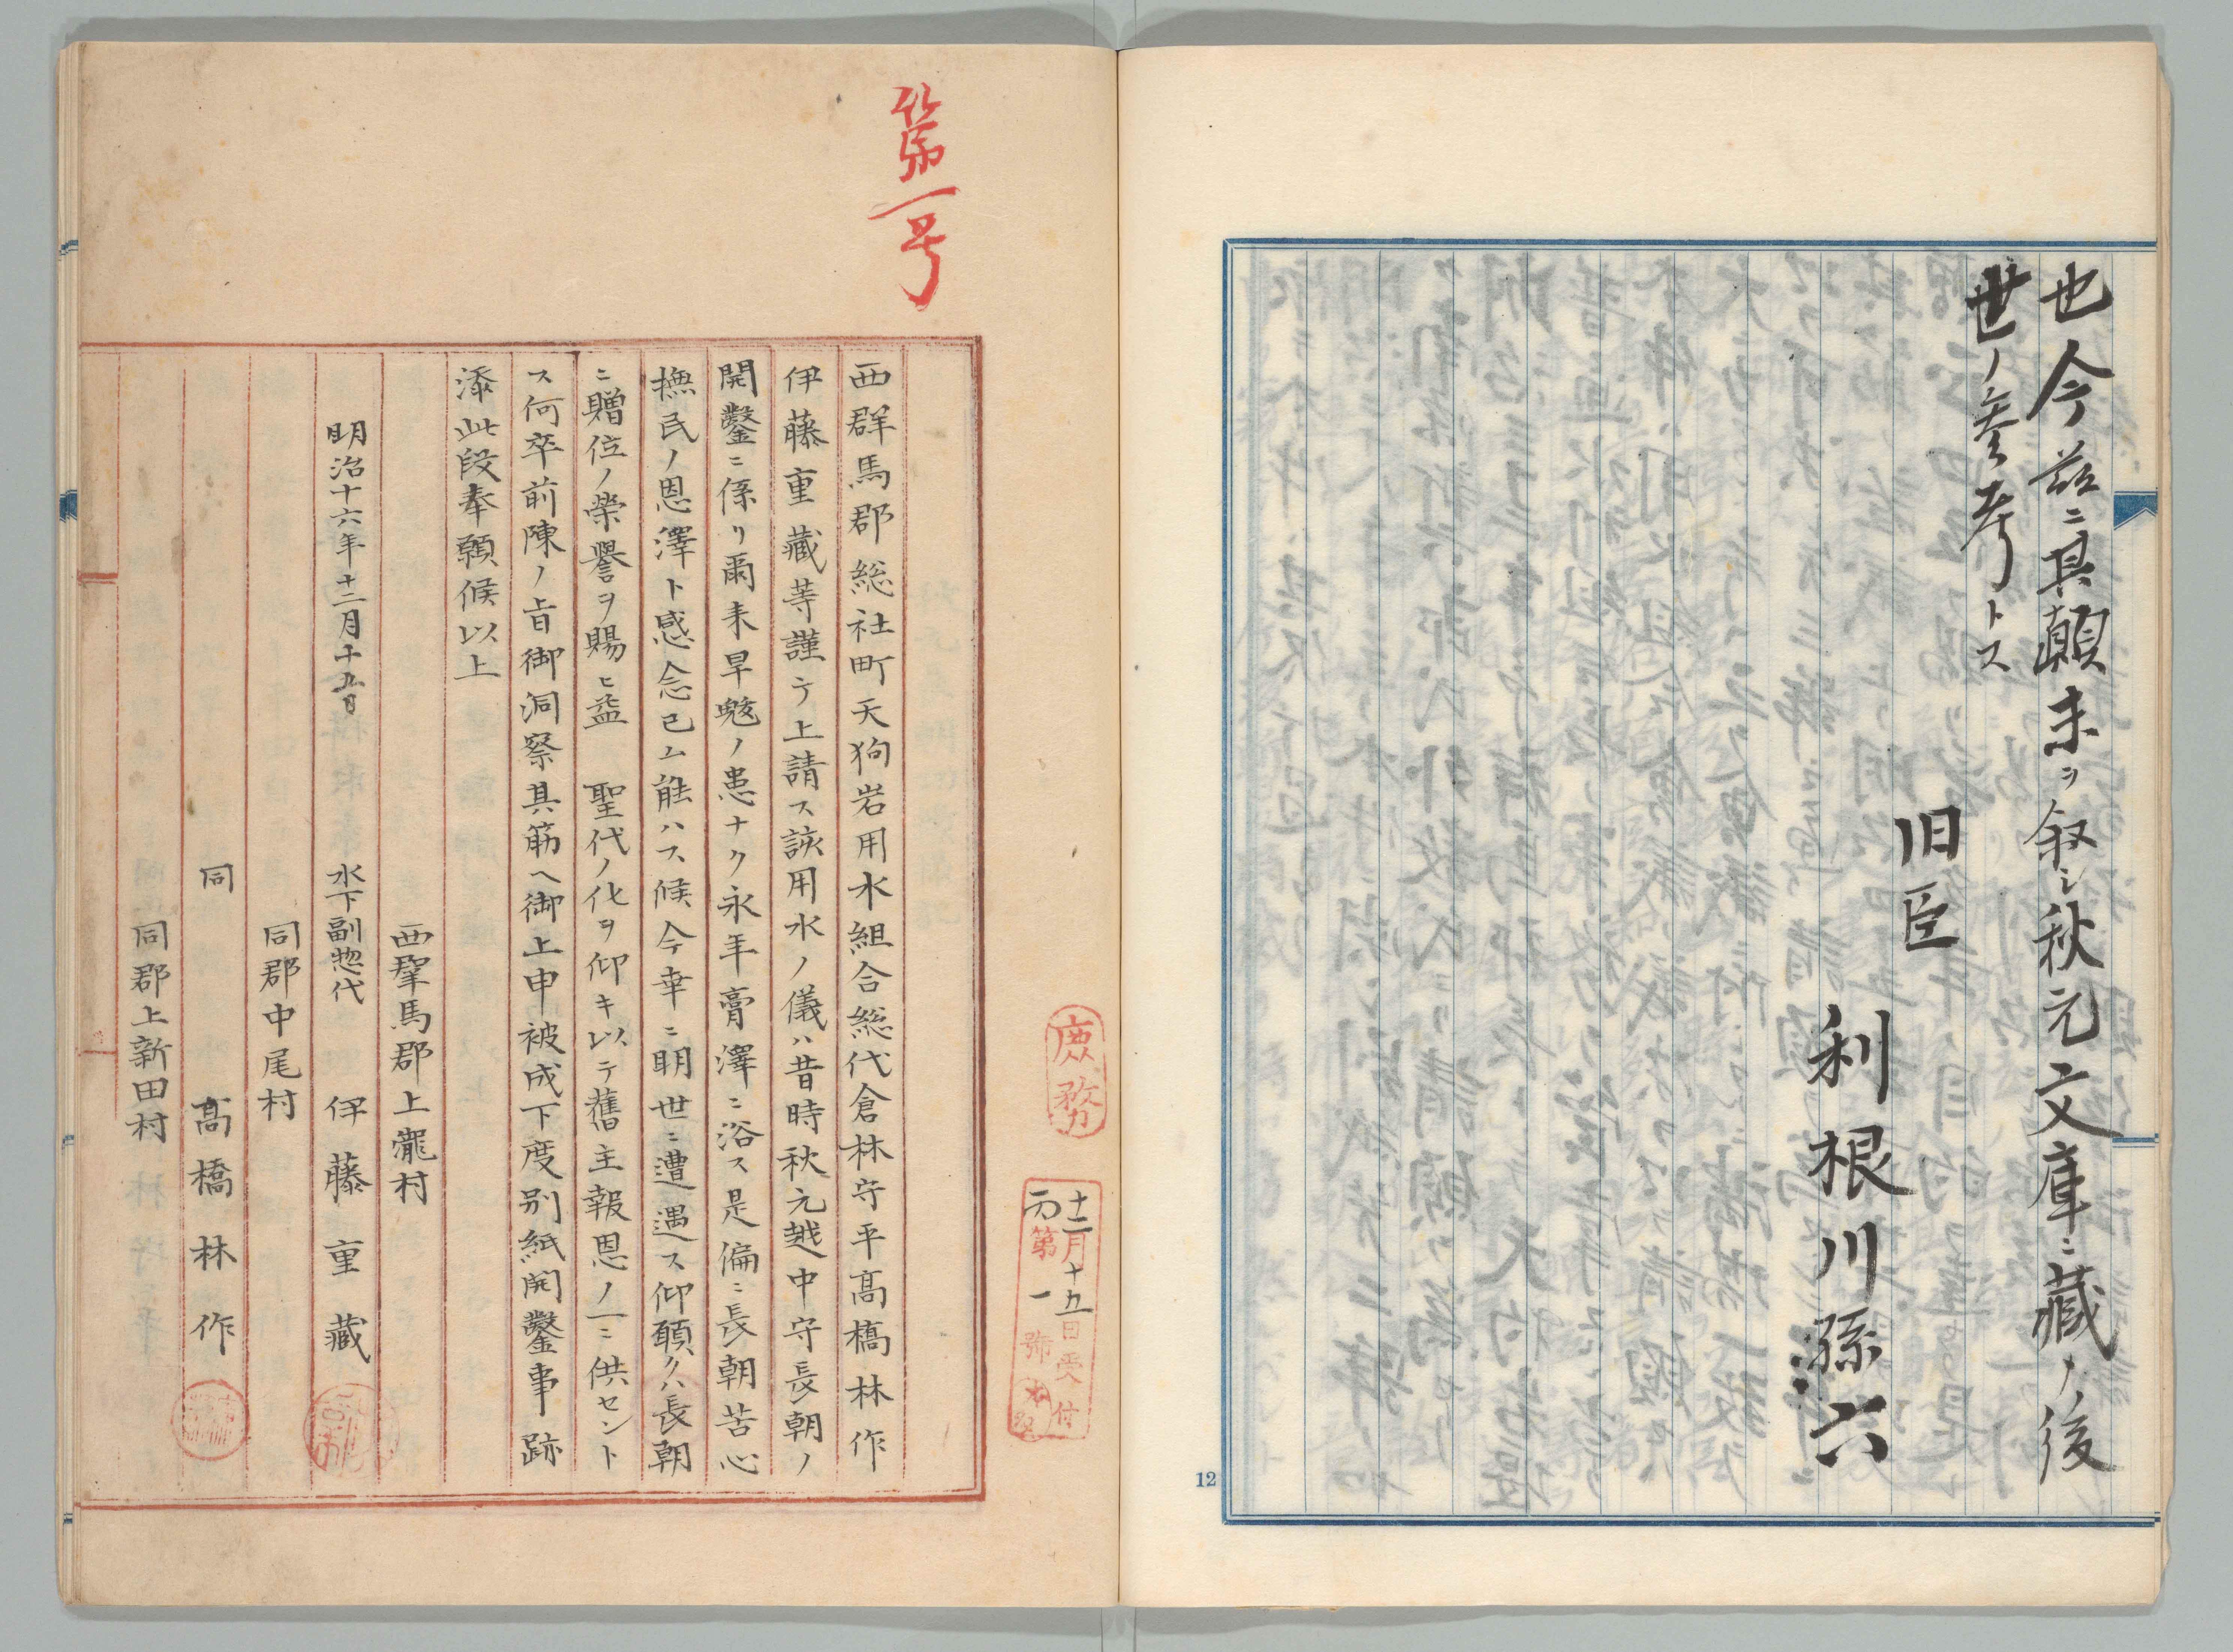 也今茲ニ其顛末ヲ叙シ秋元文庫ニ藏メ後
世ノ参考トス
旧臣
利根川孫六
12
第一号
庶務
十二月十五日受付
第一號
西群馬郡総社町天狗岩用水組合総代倉林守平髙橋林作
伊藤重藏等謹テ上請ス該用水ノ儀ハ昔時秋元越中守長朝ノ
開鑿ニ係リ爾来旱魃ノ患ナク永年膏澤ニ浴ス是偏ニ長朝苦心
撫民ノ恩澤ト感念已ム能ハス候今幸ニ明世ニ遭遇ス仰願クハ長朝
ニ贈位ノ榮譽ヲ賜ヒ益 聖代ノ化ヲ仰キ以テ舊主報恩ノ一ニ供セント
ス何卒前陳ノ旨御洞察其筋ヘ御上申被成下度別紙開鑿事跡
添此段奉願候以上
西羣馬郡上瀧村
明治十六年十二月十五日 水下副惣代 伊藤重藏
同郡中尾村
同 髙橋林作
同郡上新田村